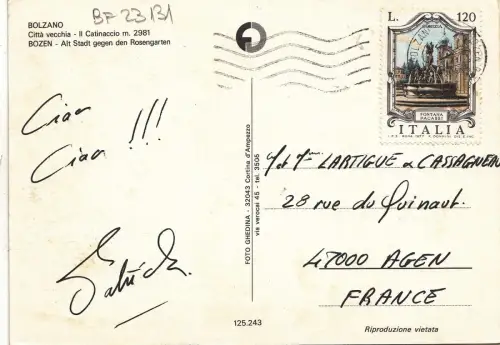 BF 23 131
BOLZANO
Città vecchia - Il Catinaccio m. 2981
BOZEN - Alt Stadt gegen den Rosengarten
Ciao
Ciao !!!
FOTO GHEDINA - 32043 Cortina d'Ampezzo
via verocai 45 - tel. 3506
125.243
L. 120
FONTANA
ITALIA
LARTIGUE & CASSAGNEAU
28 rue du Quinaut.
47000 AGEN
FRANCE
Riproduzione vietata